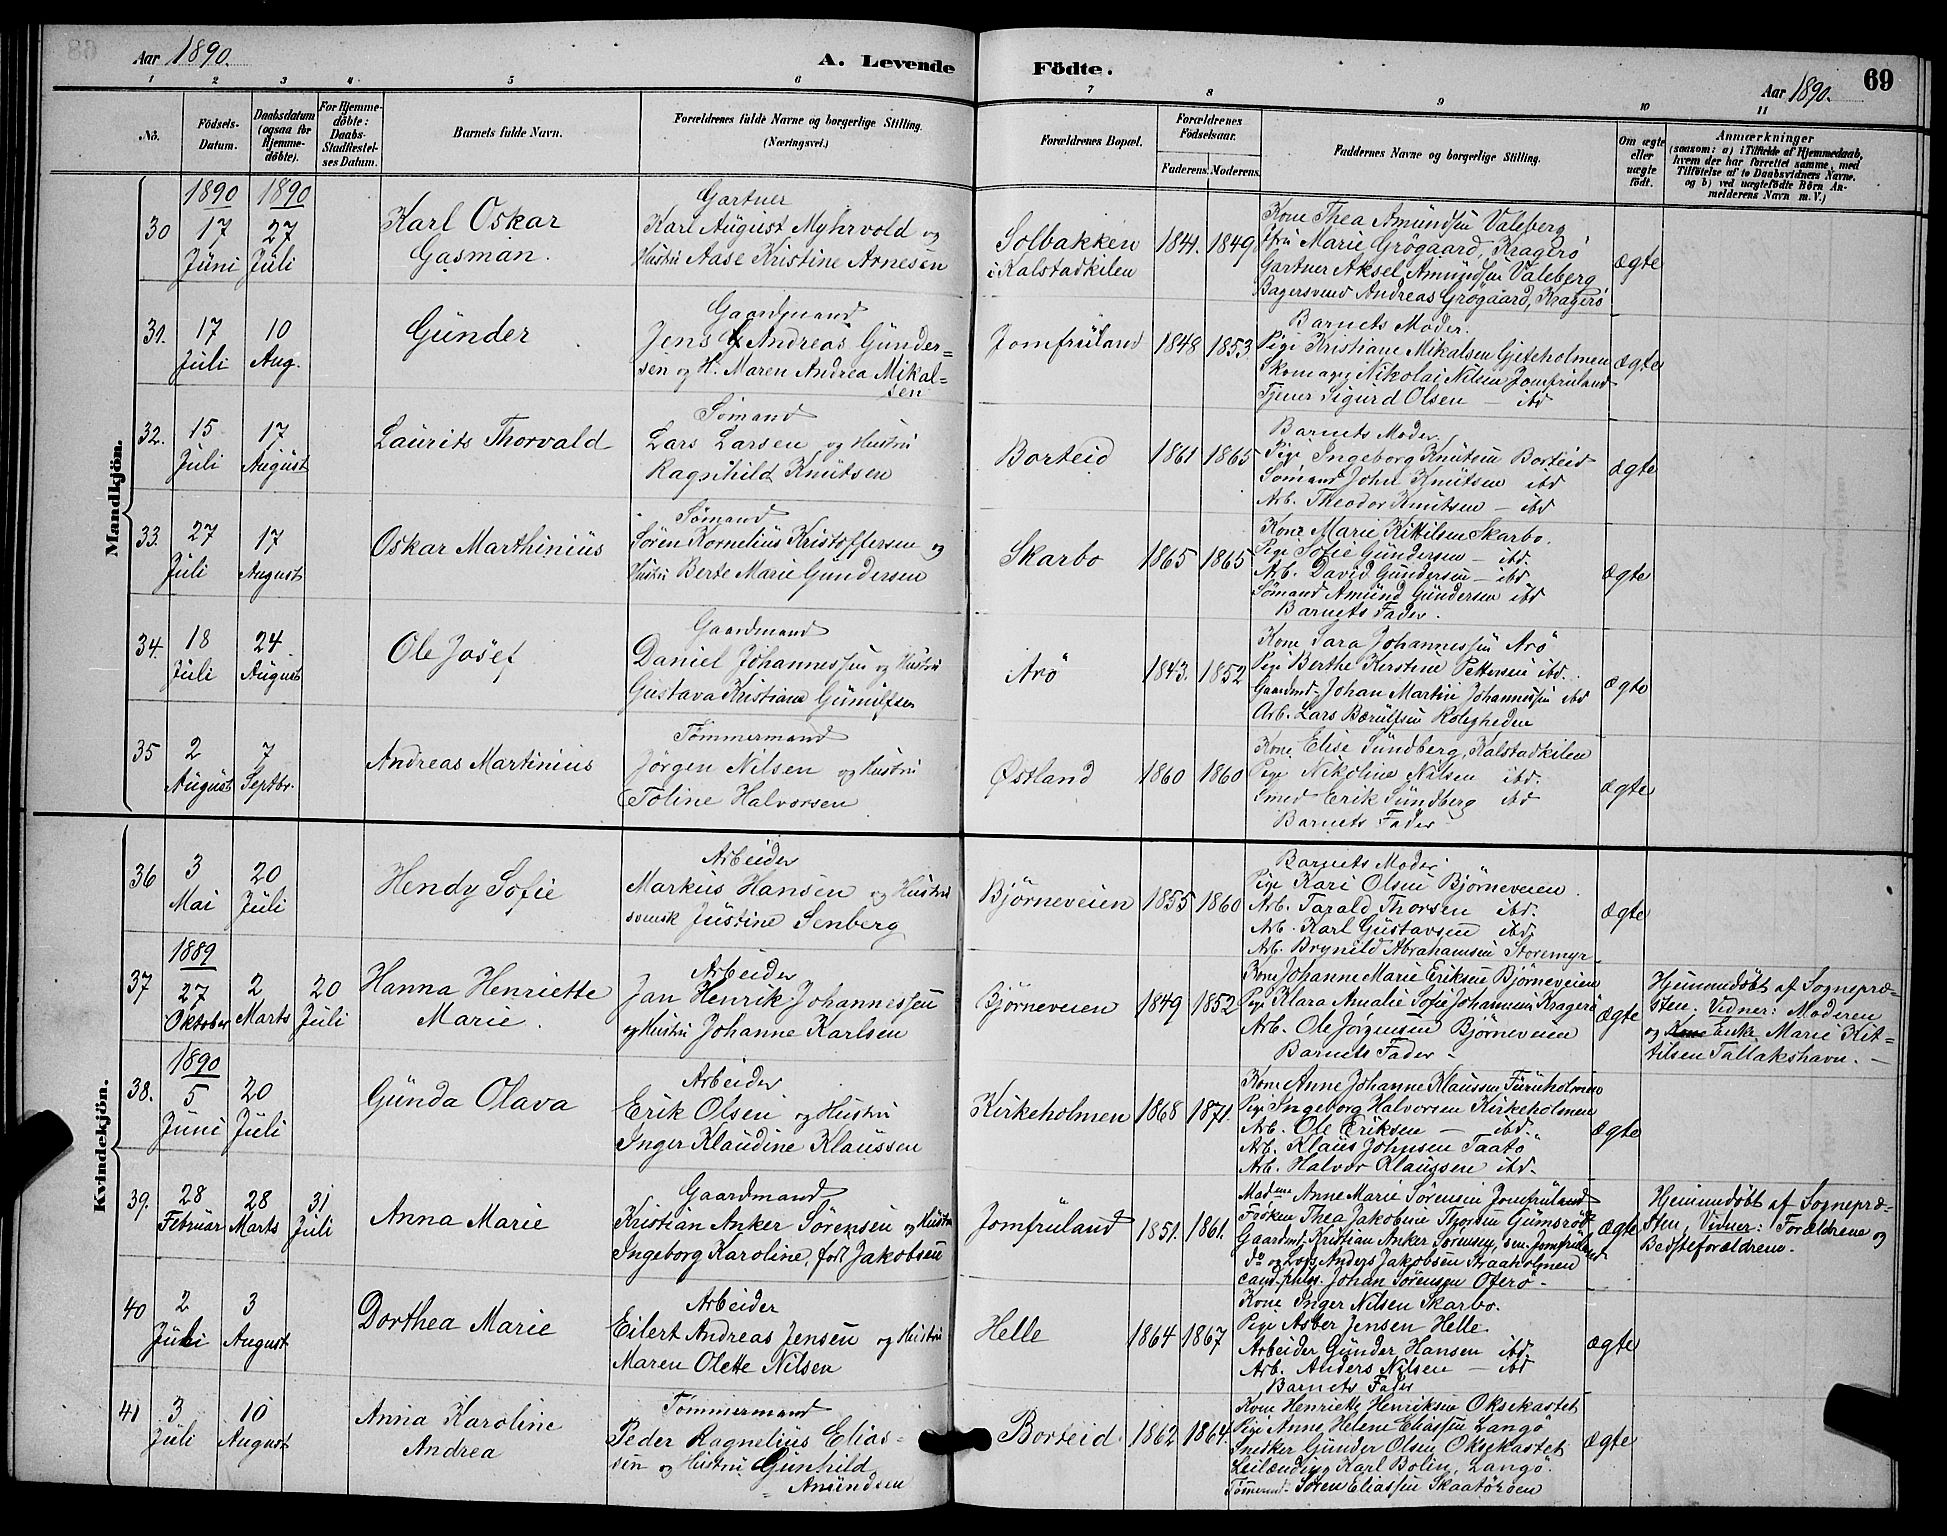 Aar 1890.
A. Levende Fødte.
Aar 1890.
69
1 2 3 4 5 6 7 8 9 10 11
No.
Fødsels-Datum.
Daabsdatum (ogsaa for Hjemmedøbte).
For Hjemmedöbte: Daabs-Stadfestelses Datum.
Barnets fulde Navn.
Forældrenes fulde Navne og borgerlige Stilling. (Næringsvei.)
Forældrenes Bopæl.
Forældrenes Födselsaar.
Faderens. Moderens.
Faddernes Navne og borgerlige Stilling.
Om ægte eller uægte födt.
Anmærkninger
(saasom: a) i Tilfælde af Hjemmedaab, hvem der har forrettet samme, med Tilføielse af to Daabsvidners Navne, og b) ved uægtefødte Børn Anmelderens Navn m. V.)
Mandkjön.
1890 1890
30 17 Juni 27 Juli
Karl Oskar
Gasman.
Gartner
Karl August Myhrvold og
Hustru Aase Kristine Arnesen
Solbakken
i Kalstadkilen
1841. 1849
Kone Thea Amundsen Valeberg
Fru Marie Grögaard, Kragerö
Gartner Aksel Amundsen Valeberg
Bagersvend Andreas Grögaard, Kragerö
ægte
31. 17 Juli 10 Aug.
Gunder
Gaardmand
Jens Andreas Gunder-
sen og H. Maren Andrea Mikal-
sen
Jomfruland
1848 1853
Barnets Moder.
Pige Kristiane Mikalsen Gjeteholmen
Skomager Nikolai Nilsen Jomfruland
Tjener Sigurd Olsen — ibd
ægte
32. 15 Juli 17 August
Laurits Thorvald
Sömand
Lars Larsen og Hustru
Ragnhild Knutsen
Borteid
1861 1865
Barnets Moder.
Pige Ingeborg Knutsen Borteid
Sömand John Knutsen ibd
Arb. Theodor Knutsen — ibd
ægte
33. 27 Juli 17 August
Oskar Marthinius
Sömand
Sören Kornelius Kristoffersen og
Hustru Berte Marie Gundersen
Skarbo
1865 1865
Kone Marie Kittilsen Skarbo.
Pige Sofie Gundersen — ibd.
Arb. David Gundersen — ibd
Sömand Amund Gundersen ibd
Barnets Fader.
ægte
34. 18 Juli 24. August
Ole Josef
Gaardmand
Daniel Johannessen og Hustru
Gustava Kristiane Gunulfsen
Arö
1843. 1852
Kone Sara Johannessen Arö
Pige Berthe Kerstine Pettersen ibd.
Gaardmd. Johan Martin Johannessen ibd
Arb. Lars Bærulfsen Roligheden
ægte
35 2 August 7 Septbr.
Andreas Martinius
Tömmermand
Jörgen Nilsen og Hustru
Toline Halvorsen
Østland
1860 1860
Kone Elise Sundberg, Kalstadkilen
Pige Nikoline Nilsen ibd.
Smed Erik Sundberg ibd
Barnets Fader
ægte
Kvindekjön.
36 3 Mai 20 Juli
Hendy Sofie
Arbeider
Markus Hansen og Hustru
svensk Justine Senberg
Björneveien
1855 1860
Barnets Moder
Pige Kari Olsen Björneveien.
Arb. Tarald Thorsen ibd.
Arb. Karl Gustavsen ibd.
Arb. Brynild Abrahamsen Storemyr
ægte
1889
37 27 Oktober 2 Marts 20 Juli
Hanna Henriette
Marie.
Arbeider
Jan Henrik Johannessen
og Hustru Johanne Karlsen
Björneveien
1849 1852
Kone Johanne Marie Eriksen Björneveien
Pige Klara Amalie Sofie Johannesen Kragerö
Arb. Ole Jörgensen Björneveien
Barnets Fader
ægte
Hjemmedøbt af Sognepræ-
sten. Vidner: Moderen
og Kone Enke Marie Kit-
tilsen Tallakshavn. —
1890
38. 5 Juni 20 Juli
Gunda Olava
Arbeider
Erik Olsen og Hustru
Inger Klaudine Klaussen
Kirkeholmen
1868 1871.
Kone Anne Johanne Klaussen Furuholmen
Pige Ingeborg Halvorsen Kirkeholmen
Arb. Ole Eriksen — ibd.
Arb. Klaus Johnsen Taatö
Arb. Halvor Klaussen ibd.
ægte
39. 28 Februar 28 Marts 31 Juli
Anna Marie
Gaardmand
Kristian Anker Sörensen og Hustru
Ingeborg Karoline, født Jakobsen
Jomfruland
1851. 1861.
Madme Anne Marie Sörensen Jomfruland
Fröken Thea Jakobine Thorsen Gumsrö
Gaardmd. Kristian Anker Sörensen, sen. Jomfruland
do og Lods Anders Jakobsen Straaholmen
cand. philos. Johan Sörensen Oterö
ægte
Hjemmedøbt af Sognepræ-
sten, Vidner: Forældrene og
Bedsteforældrene.
40 2 Juli 3 August
Dorthea Marie
Arbeider
Eilert Andreas Jensen og Hustru
Maren Olette Nilsen
Helle
1864 1867
Kone Inger Nilsen Skarbo.
Pige Asber Jensen Helle
Arbeider Gunder Hansen ibd.
Arb. Anders Nilsen — ibd
Barnets Fader
ægte
41 3 Juli 10 August
Anna Karoline
Andrea
Tömmermand
Peder Ragnelius Elias-
sen og Hustru Gunhild
Amundsen
Borteid
1862 1864
Kone Henriette Henriksen Oksekastet
Pige Anne Helene Eliassen Langö
Snedker Gunder Olsen Oksekastet
Leilænding Karl Bolin, Langö.
Tömermd. Sören Eliassen Skaatöröen
ægte